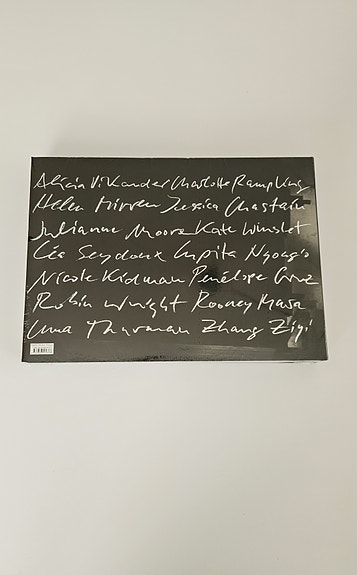 Alicia Vikander Charlotte Rampling
Helen Mirren Jessica Chastain
Julianne Moore Kate Winslet
Léa Seydoux Lupita Nyong'o
Nicole Kidman Penélope Cruz
Robin Wright Rooney Mara
Uma Thurman Zhang Ziyi